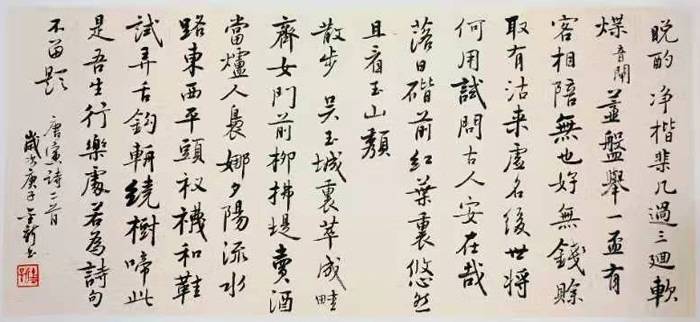 晚酌 净楷棐几過三廻軟
煠音閘薑盤舉一盃有
客相陪無也好無錢賒
取有沽来虚名後世将
何用試問古人安在哉
落日前紅葉裏悠然
且看玉山頽
散步 吴王城裏草成畦
齊女門前柳拂堤賣酒
當爐人裊娜夕陽流水
路東西平頭襪和鞋
試弄舌鉤輈繞樹啼此
是吾生行樂處若為詩句
不留題 唐寅詩二首
歲次庚子書